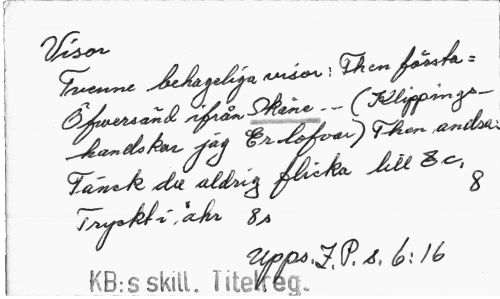 Visor
Tvenne behageliga visor: Then första=
Öfwersänd ifrån Skåne... (Klippings-
handskar jag Er lofvar) Then andra:
Tänck du aldrig flicka lill &c,
8
Tryckt i åhr 8s
Upps. F. P. s. 6:16
KB:s skill. Titelreg.